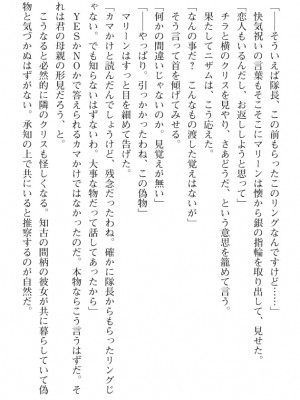 「――そういえば隊長、この前もらったこのリングなんですけど……」
快気祝いの言葉もそこそこにマリーンは懐から銀の指輪を取り出して、見せた。
「恋人もいるんだし、お返ししようと思って」
チラと横にのクリスを見やり、さあどうだ、という意思を籠めて言う。
果たしてニザムは、こう応えた。
「なんの事だ？　こんなもの渡した覚えはないが」
そう言って首を傾げてみせる。
「何かの間違いじゃないのか。見覚えが無い」
「――やっぱり。引っかかったわね、この偽物」
マリーンはすっと目を細めて告げた。
「カマかけと読んだんでしょうけど、残念だったわね。確かに隊長からもらったリングじ
ゃない。でも知らないはずないわ。大事な物だって話してあったから」
ＹＥＳかＮＯかで答えられるカマかけではなかったのだ。本物ならこう言うはずだ。そ
れは君の母親の形見だろう、と。
こうなると必然的に隣のクリスも怪しくなる。知古の間柄の彼女が共に暮らしていて偽
物と気づかぬはずがない。承知の上で共にいると推察するのが自然だ。